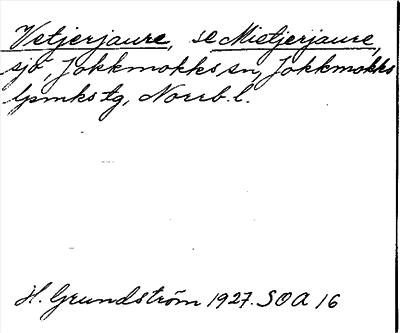 Vetjerjaure, se Mietjerjaure,
sjö, Jokkmokks sn, Jokkmokks
lpmks tg, Norrb. l.
H. Grundström 1927. SOA 16